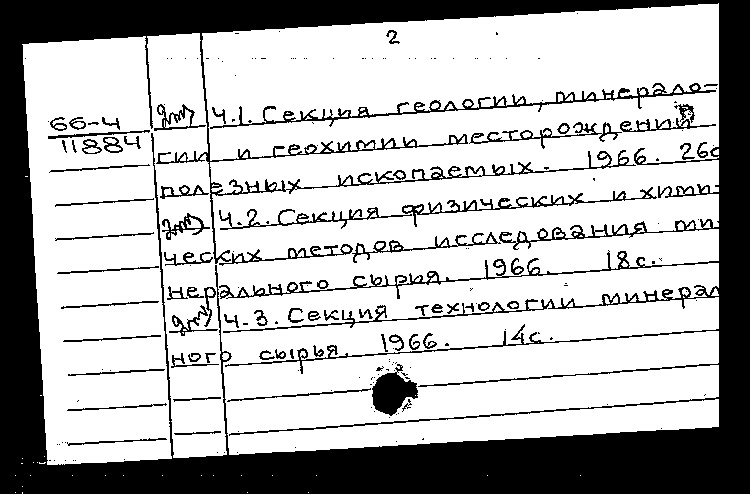 2
66-4
11884
Ч.1. Секция геологии, минерало=
гии и геохимии месторождений
полезных ископаемых. 1966. 26с
Ч.2. Секция физических и хими-
ческих методов исследования ми-
нерального сырья. 1966. 18с.
Ч.3. Секция технологии минерал
ного сырья. 1966. 14с.